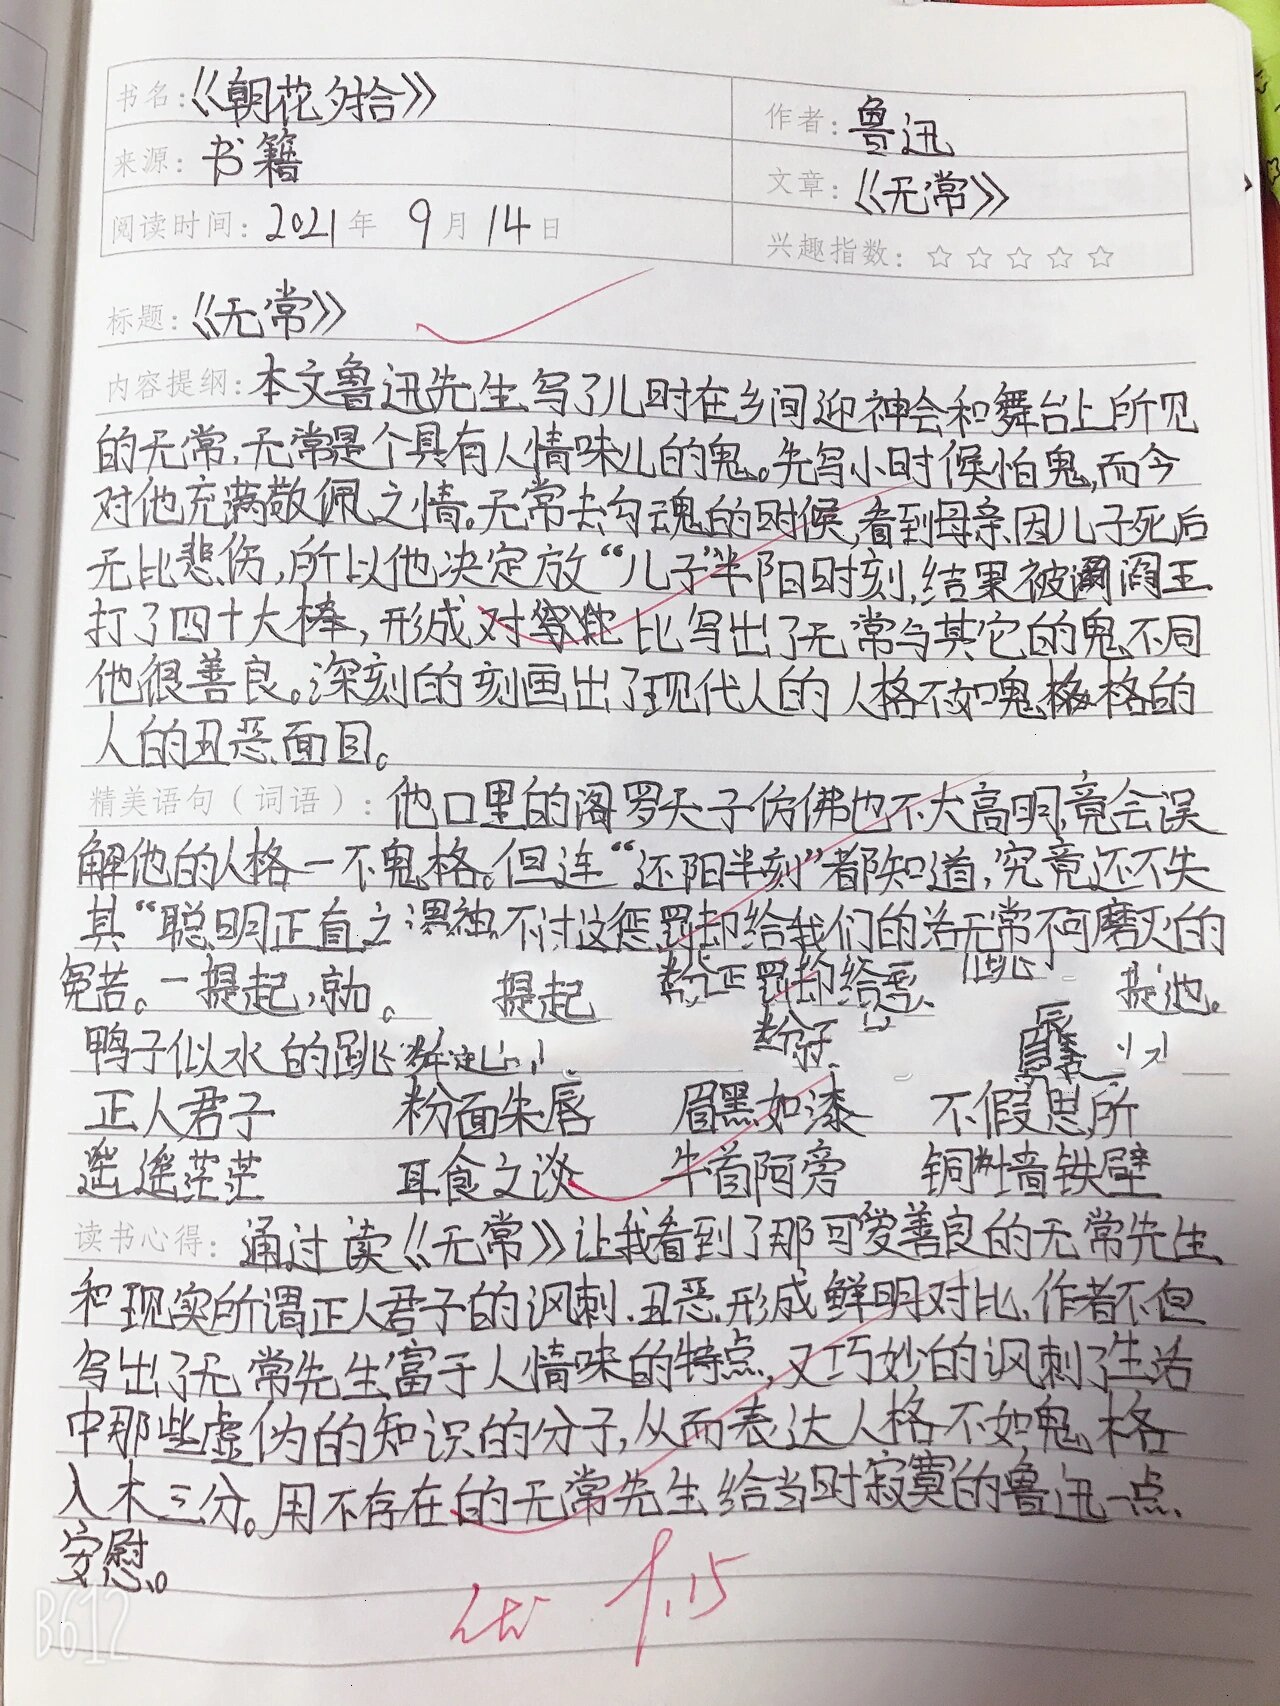 书名：《朝花夕拾》
作者：鲁迅
来源：书籍
文章：《无常》
阅读时间：2021年 9月14日
兴趣指数：☆☆☆☆☆
标题：《无常》
内容提纲：本文鲁迅先生写了儿时在乡间迎神会和舞台上所见
的无常，无常是个具有人情味儿的鬼。先写小时候怕鬼，而今
对他充满敬佩之情。无常去勾魂的时候，看到母亲因儿子死后
无比悲伤，所以他决定放“儿子”半阳时刻，结果被阎王
打了四十大棒，形成对比写出了无常与其它的鬼不同
他很善良。深刻的刻画出了现代人的人格不如鬼格的
人的丑恶面目。
精美语句（词语）：他口里的阎罗天子仿佛也不大高明，竟会误
解他的人格一不鬼格。但连“还阳半刻”都知道，究竟还不失
其“聪明正直之谓神，不过这惩罚却给我们的活无常不可磨灭的
冤苦。一提起，就。 提起
鸭子似水的跳
正人君子 粉面朱唇 眉黑如漆 不假思所
遥遥茫茫 耳食之谈 牛首阿旁 铜墙铁壁
读书心得：通过读《无常》让我看到了那可爱善良的无常先生
和现实所谓正人君子的讽刺、丑恶，形成鲜明对比，作者不但
写出了无常先生富于人情味的特点，又巧妙的讽刺了生活
中那些虚伪的知识的分子，从而表达人格不如鬼格
入木三分。用不存在的无常先生给当时寂寞的鲁迅一点
安慰。
优 9.15
B612